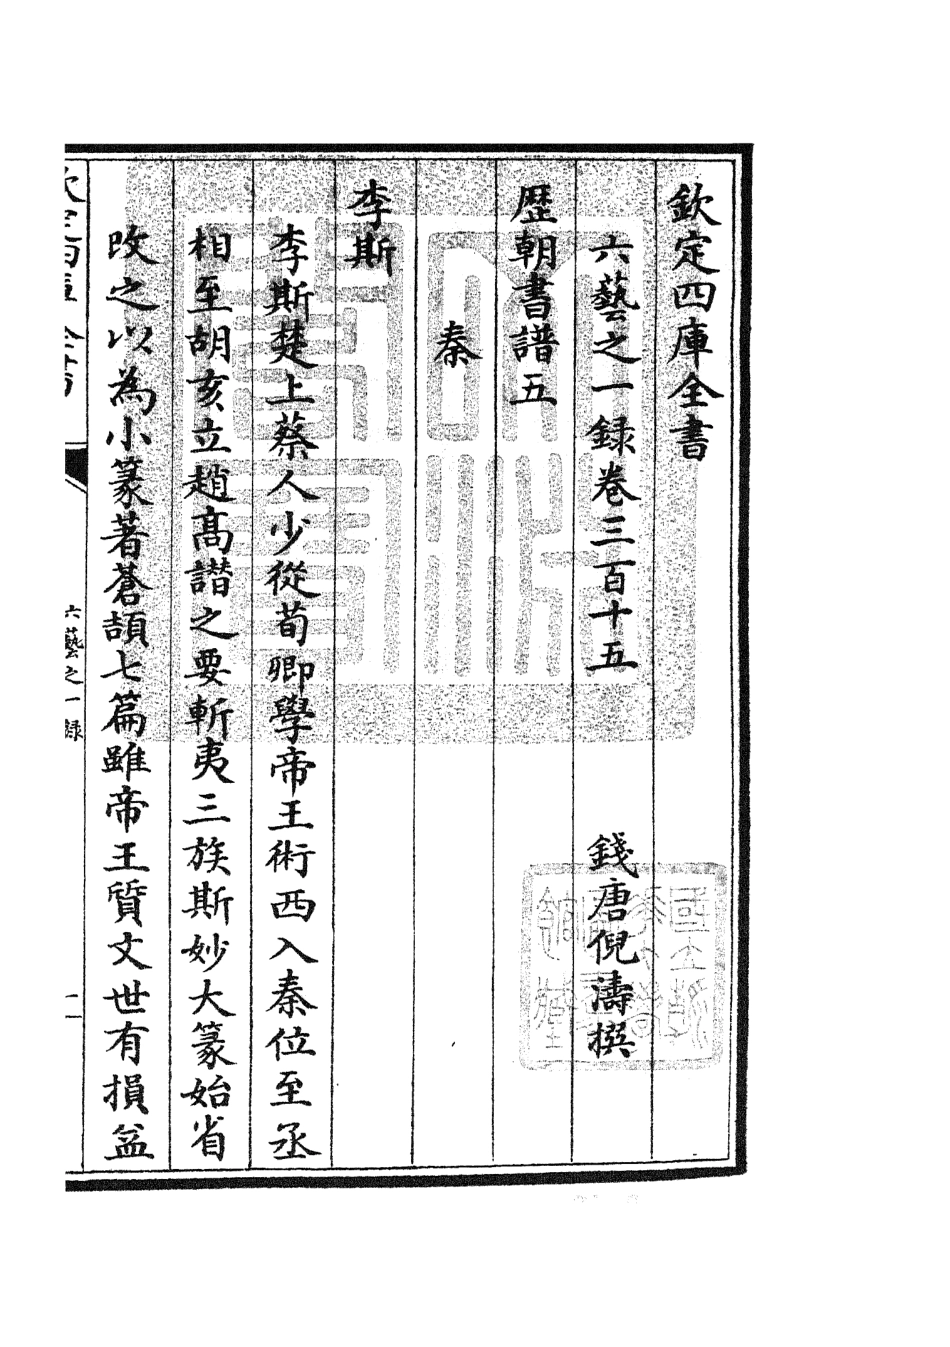 欽定四庫全書
六藝之一録卷三百十五
錢唐倪濤撰
歴朝書譜五
秦
李斯
李斯楚上蔡人少從荀卿學帝王術西入秦位至丞
相至胡亥立趙髙譛之要斬夷三族斯妙大篆始省
改之以為小篆著蒼頡七篇雖帝王質文世有損益
六藝之一録
二